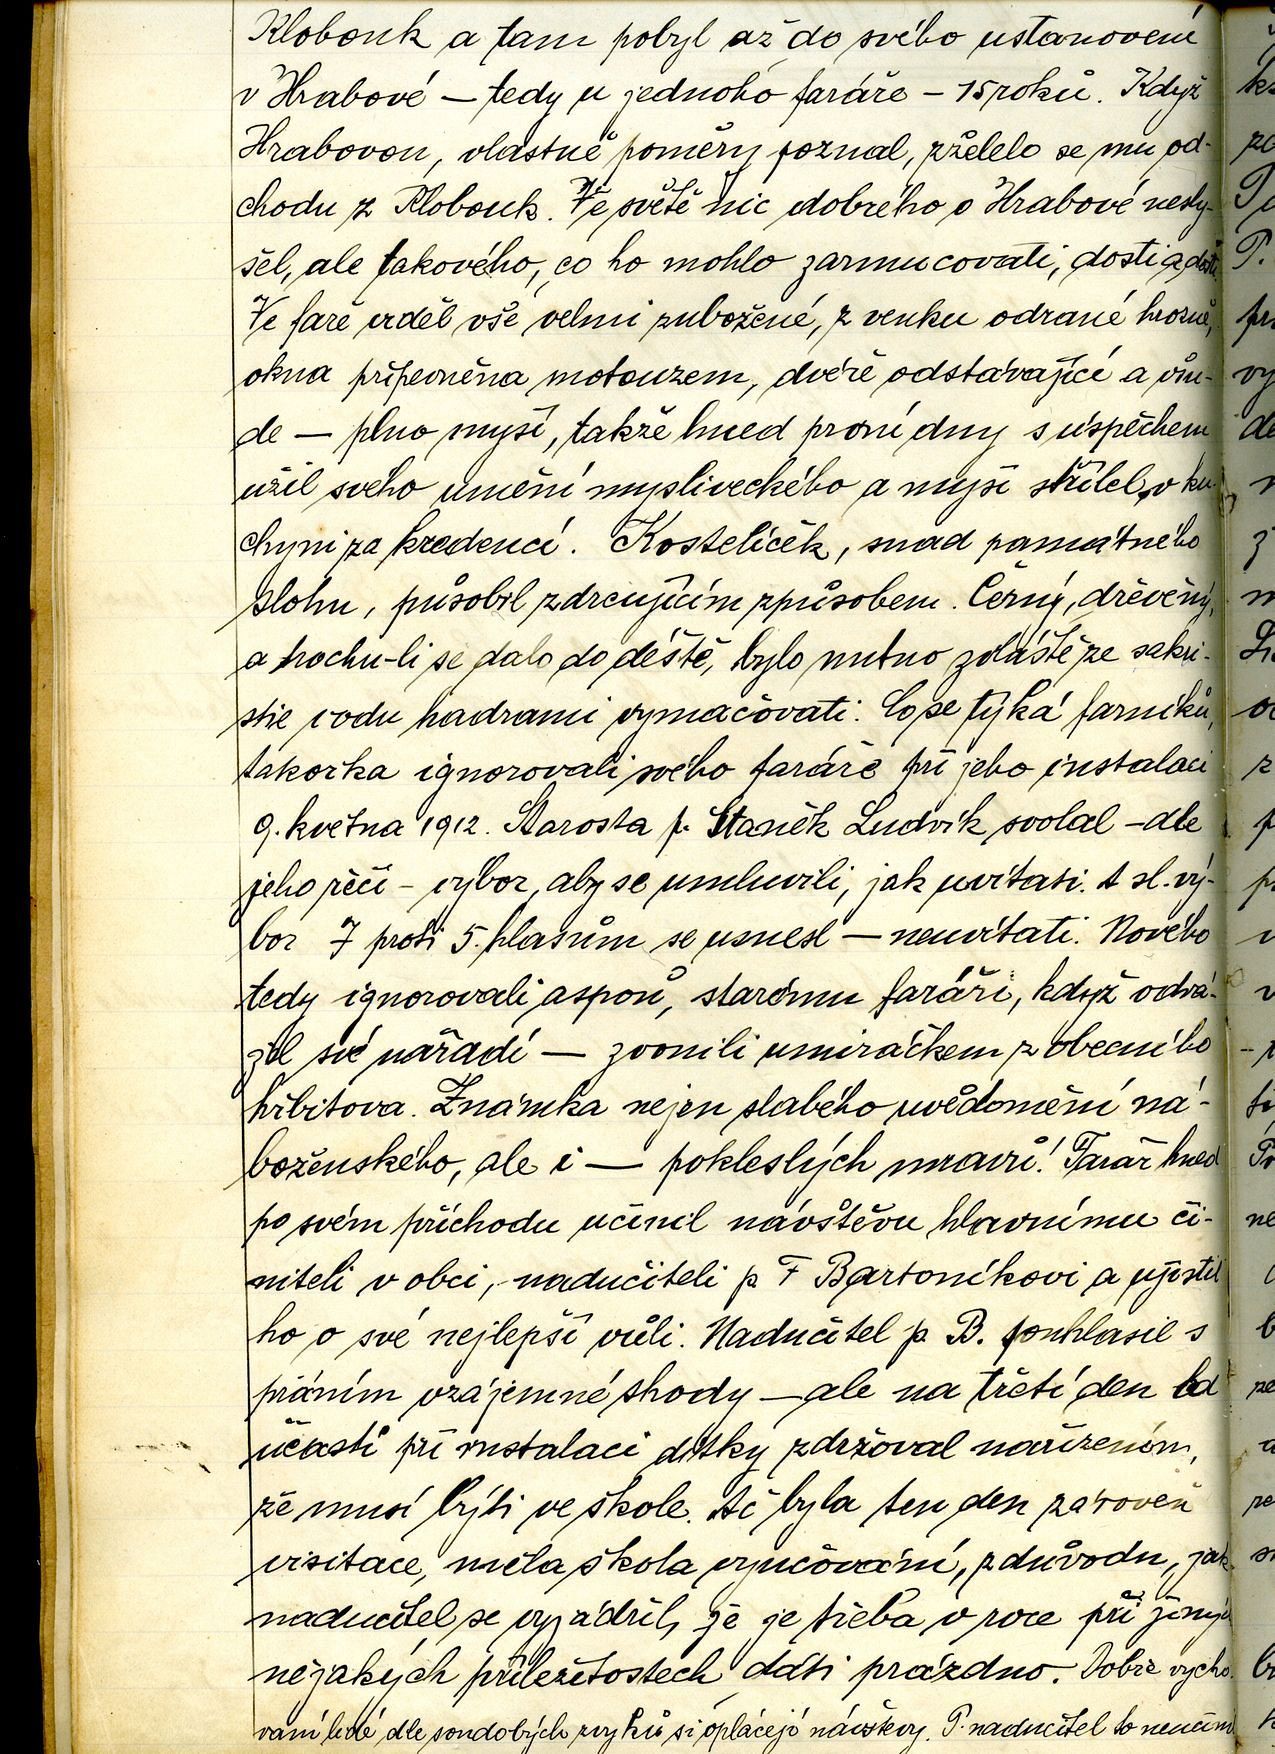 Klobouk a tam pobyl až do svého ustanovení
v Hrabové — tedy u jednoho faráře – 15 roků. Když
Hrabovou, vlastně poměry poznal, zželelo se mu od-
chodu z Klobouk. Ve světě nic dobrého o Hrabové nesly-
šel, ale takového, co ho mohlo zarmucovati, dosti a dosti.
Ve faře viděl vše velmi zubožené, z venku odrané hrozně,
okna připevněna motouzem, dvéře odstávající a vše-
de — plno myší, takže hned první dny s úspěchem
užil svého umění mysliveckého a myši střílel v ku-
chyni za kredencí. Kostelíček, snad památného
slohu, působil zdrcujícím způsobem. Černý, dřevěný,
a trochu-li se dalo do deště, bylo nutno zvláště ze sakri-
stie vodu hadrami vymačovati. Co se týká farníků,
takořka ignorovali svého faráře při jeho instalaci
9. května 1912. Starosta p. Staněk Ludvík svolal – dle
jeho řečí – výbor, aby se umluvili, jak uvítati. A sl. vý-
bor 7 proti 5 hlasům se usnesl — neuvítati. Nového
tedy ignorovali aspoň, starému faráři, když odvá-
žel své nářadí — zvonili umíráčkem z obecního
hřbitova. Známka nejen slabého uvědomění ná-
boženského, ale i — pokleslých mravů! Farář hned
po svém příchodu učinil návštěvu hlavnímu či-
niteli v obci, nadučiteli p F Bartoníkovi a ujistil
ho o své nejlepší vůli. Nadučitel p. B. souhlasil s
přáním vzájemné shody — ale na třetí den od
účasti při instalaci dítky zdržoval nařízením,
že musí býti ve škole. Ač byla ten den zároveň
visitace, měla škola vyučování, z důvodu, jak
nadučitel se vyjádřil, že je třeba v roce při jiných
nějakých příležitostech dáti prázdno. Dobře vycho-
vaní lidé dle soudobých zvyků si oplácejí návštěvy. P. nadučitel to neučinil